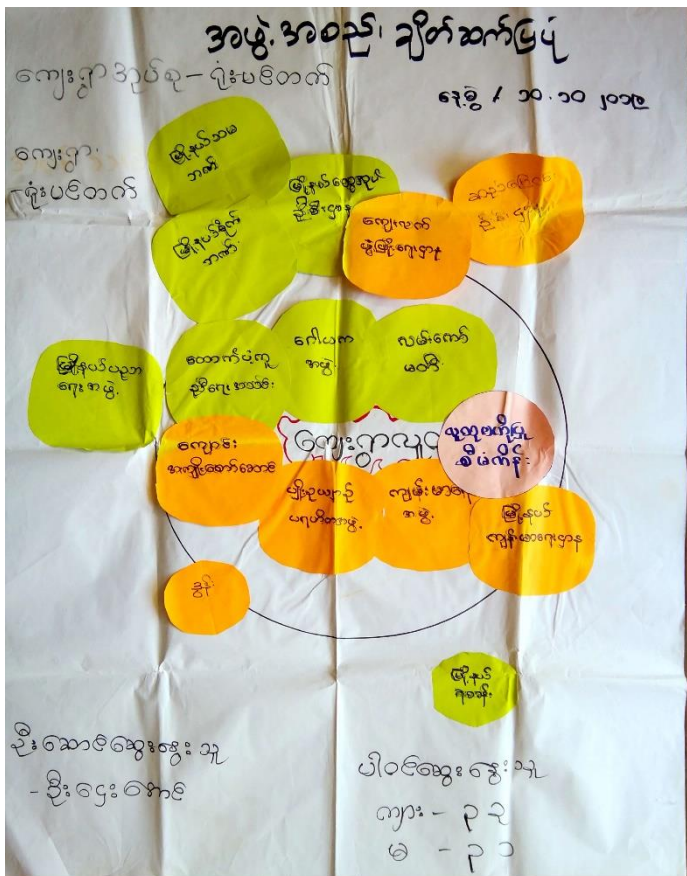 အဖွဲ့အစည်း ချိတ်ဆက်ပြပုံ
ကျေးရွာအုပ်စု - ရုံးပင်တက်
နေ့စွဲ / ၁၀.၁၀.၂၀၁၉
ကျေးရွာ
- ရုံးပင်တက်
မြို့နယ်သမ
ဘဏ်
မြို့နယ်ထွေအုပ်
ဦးစီးဌာန
ကျေးလက်
ဖွံ့ဖြိုးရေးဌာန
မြို့နယ်စိုက်
ဘဏ်
မြို့နယ်ပညာ
ရေးအဖွဲ့
ထောက်ပံ့ကူ
ညီရေးအသင်း
ဂေါပက
အဖွဲ့
လမ်းကော်
မတီ
ကျေးရွာလူထု
လူထုဗဟိုပြု
စီမံကိန်း
ကျောင်း
အကျိုးတော်ဆောင်
ပျိုးဥယျာဉ်
ပရဟိတအဖွဲ့
ကျန်းမာရေး
အဖွဲ့
မြို့နယ်
ကျန်းမာရေးဌာန
မြို့နယ်
ရဲစခန်း
ဦးဆောင်ဆွေးနွေးသူ
- ဦးဌေးအောင်
ပါဝင်ဆွေးနွေးသူ
ကျား - ၃၃
မ - ၃၁